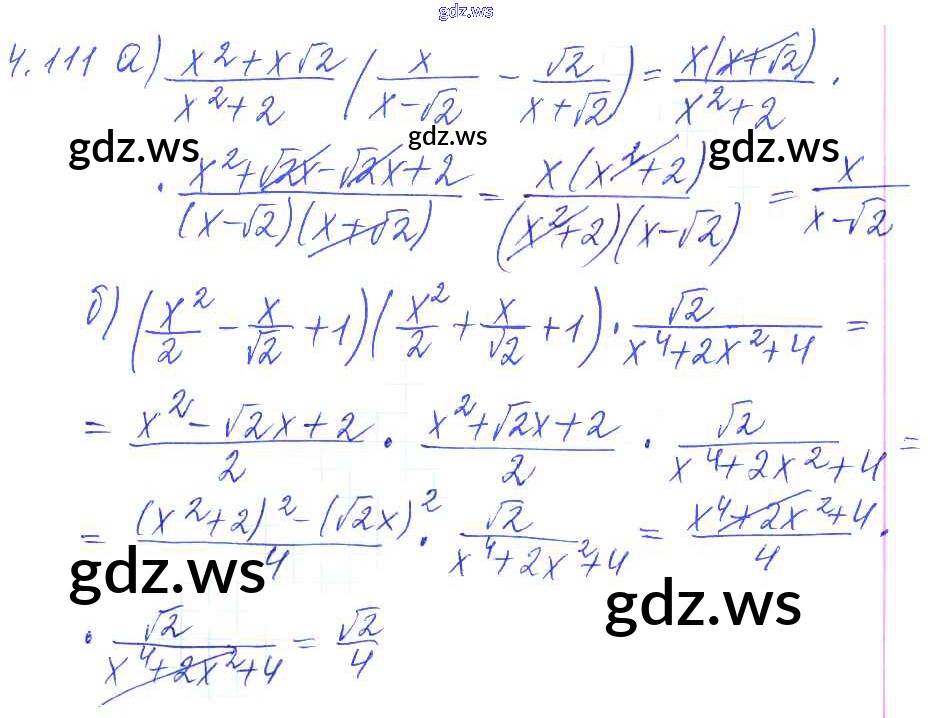 gdz.ws
4.111 а) (x²+x√2)/(x²+2) (x/(x-√2) - √2/(x+√2)) = x(x+√2)/(x²+2) ·
gdz.ws gdz.ws gdz.ws
· (x²+√2x-√2x+2)/((x-√2)(x+√2)) = x(x²+2)/((x²+2)(x-√2)) = x/(x-√2)
б) (x²/2 - x/√2 + 1)(x²/2 + x/√2 + 1) · √2/(x⁴+2x²+4) =
= (x²-√2x+2)/2 · (x²+√2x+2)/2 · √2/(x⁴+2x²+4) =
= ((x²+2)²-(√2x)²)/4 · √2/(x⁴+2x²+4) = (x⁴+2x²+4)/4 ·
gdz.ws gdz.ws
· √2/(x⁴+2x²+4) = √2/4